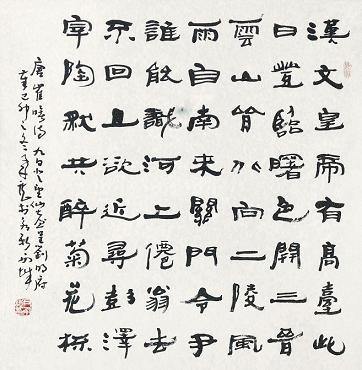 漢文皇帝有高臺此
日登臨曙色開三晉
雲山皆北向二陵風
雨自南来關門令尹
誰能識河上僊翁去
不回且欲近尋彭澤
宰陶然共醉菊花杯
唐崔曙詩九日登望仙台呈劉明府